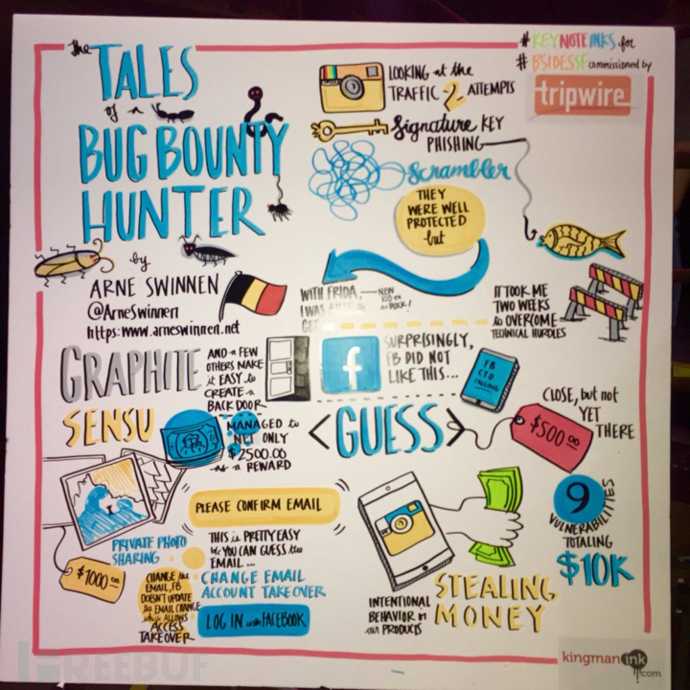 the TALES
of a
BUG BOUNTY
HUNTER
by
ARNE SWINNEN
@ArneSwinnen
https:www.arneswinnen.net
#KEYNOTEINKS for
#BSIDESSF commissioned by
tripwire
LOOKING at the
TRAFFIC 2 ATTEMPTS
Signature KEY
PHISHING
Scrambler
THEY
WERE WELL
PROTECTED
but
WITH FRIDA,
I WAS
NEW
KID on
BLOCK!
IT TOOK ME
TWO WEEKS
to OVERCOME
TECHNICAL HURDLES
GRAPHITE
SENSU
AND a FEW
OTHERS MAKE
it EASY to
CREATE a
BACK DOOR
MANAGED to
NET ONLY
$2500.00
as a REWARD
f
SURPRISINGLY,
FB DID NOT
LIKE THIS...
FB
CTO
CALLING
<GUESS>
$500.00
CLOSE, but not
YET
THERE
PRIVATE PHOTO
SHARING
$1000.00
PLEASE CONFIRM EMAIL
THIS is PRETTY EASY
b/c YOU CAN GUESS the
EMAIL...
CHANGE EMAIL
ACCOUNT TAKEOVER
LOG IN with FACEBOOK
CHANGE the
EMAIL, FB
DOESN'T UPDATE
the EMAIL CHANGE
which ALLOWS
ACCESS
TAKEOVER
INTENTIONAL
BEHAVIOR in
our PRODUCTS
STEALING
MONEY
9
VULNERABILITIES
TOTALING
$10K
kingmanink
.com
REEBUF